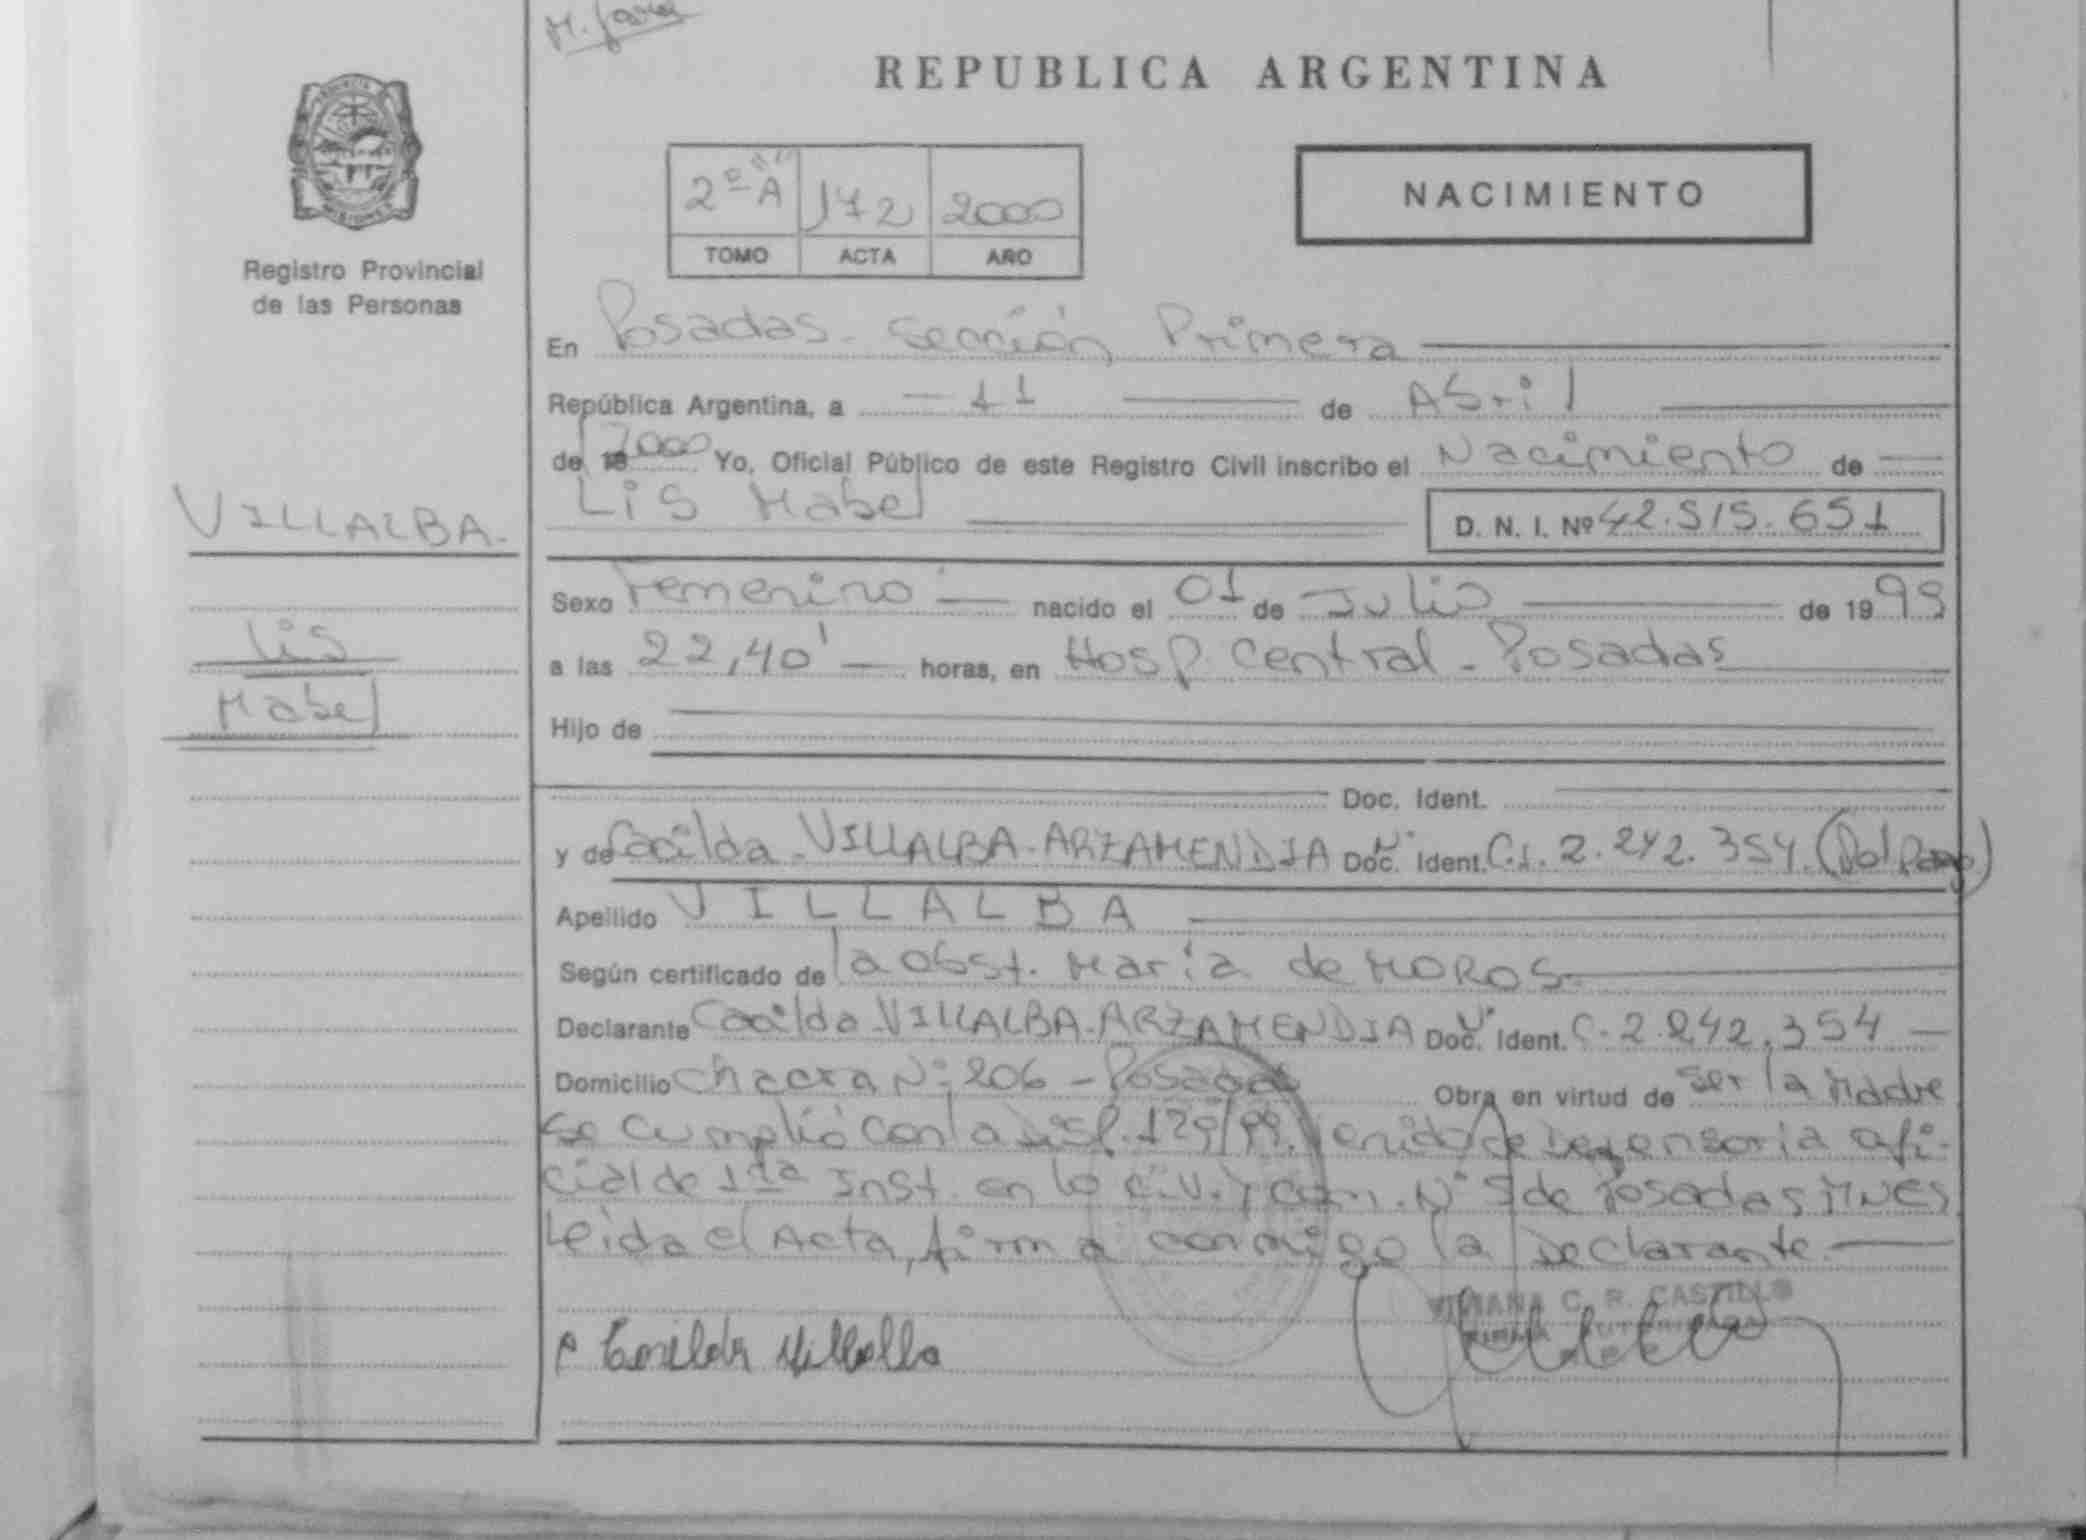 REPUBLICA ARGENTINA
Registro Provincial
de las Personas
2º A 172 2000
TOMO ACTA AÑO
NACIMIENTO
En Posadas - Sección Primera
República Argentina, a 11 de Abril
de 2000 Yo, Oficial Público de este Registro Civil inscribo el Nacimiento de
Lis Mabel D. N. I. Nº 42.515.651
VILLALBA.
Lis
Mabel
Sexo Femenino nacido el 01 de Julio de 1999
a las 22,40' horas, en Hosp. Central - Posadas
Hijo de
Doc. Ident.
y de Casilda - VILLALBA - ARZAMENDIA Nº Doc. Ident. C.I. 2.242.354. (Pol. Parag.)
Apellido VILLALBA
Según certificado de la obst. María de MOROS.
Declarante Casilda - VILLALBA - ARZAMENDIA Nº Doc. Ident. C. 2.242.354
Domicilio Chacra Nº 206 - Posadas Obra en virtud de ser la Madre
se cumplió con la Disp. 129/99. de Defensoria ofi-
cial de 1ra Inst. en lo Civ. y Com. Nº 5 de Posadas Mnes
Leida el Acta, firma conmigo la Declarante.
VIVIANA C. R. CASTILLO
FIRMA AUTORIZADA
Casilda Villalba